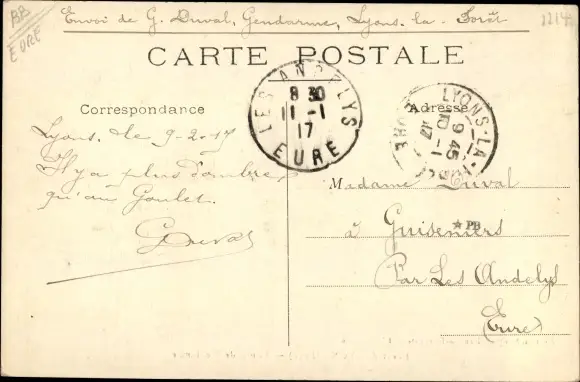 BB
EURE
Envoi de G. Duval, Gendarme, Lyons-la-Forêt
CARTE POSTALE
Correspondance
Adresse
LES ANDELYS
8 30
11 -1
17
EURE
LYONS-LA-
9 45
10 -1
17
EURE
Lyons, le 9-2-17
Il y a plus d'ombre
qu'au Goulet.
GDuval
Madame Duval
à Guiseniers
PB
Par Les Andelys
(Eure)